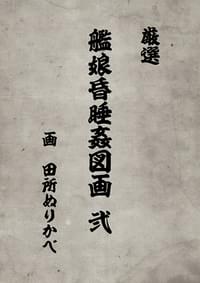 厳選
艦娘昏睡姦図画 弐
画 田所ぬりかべ